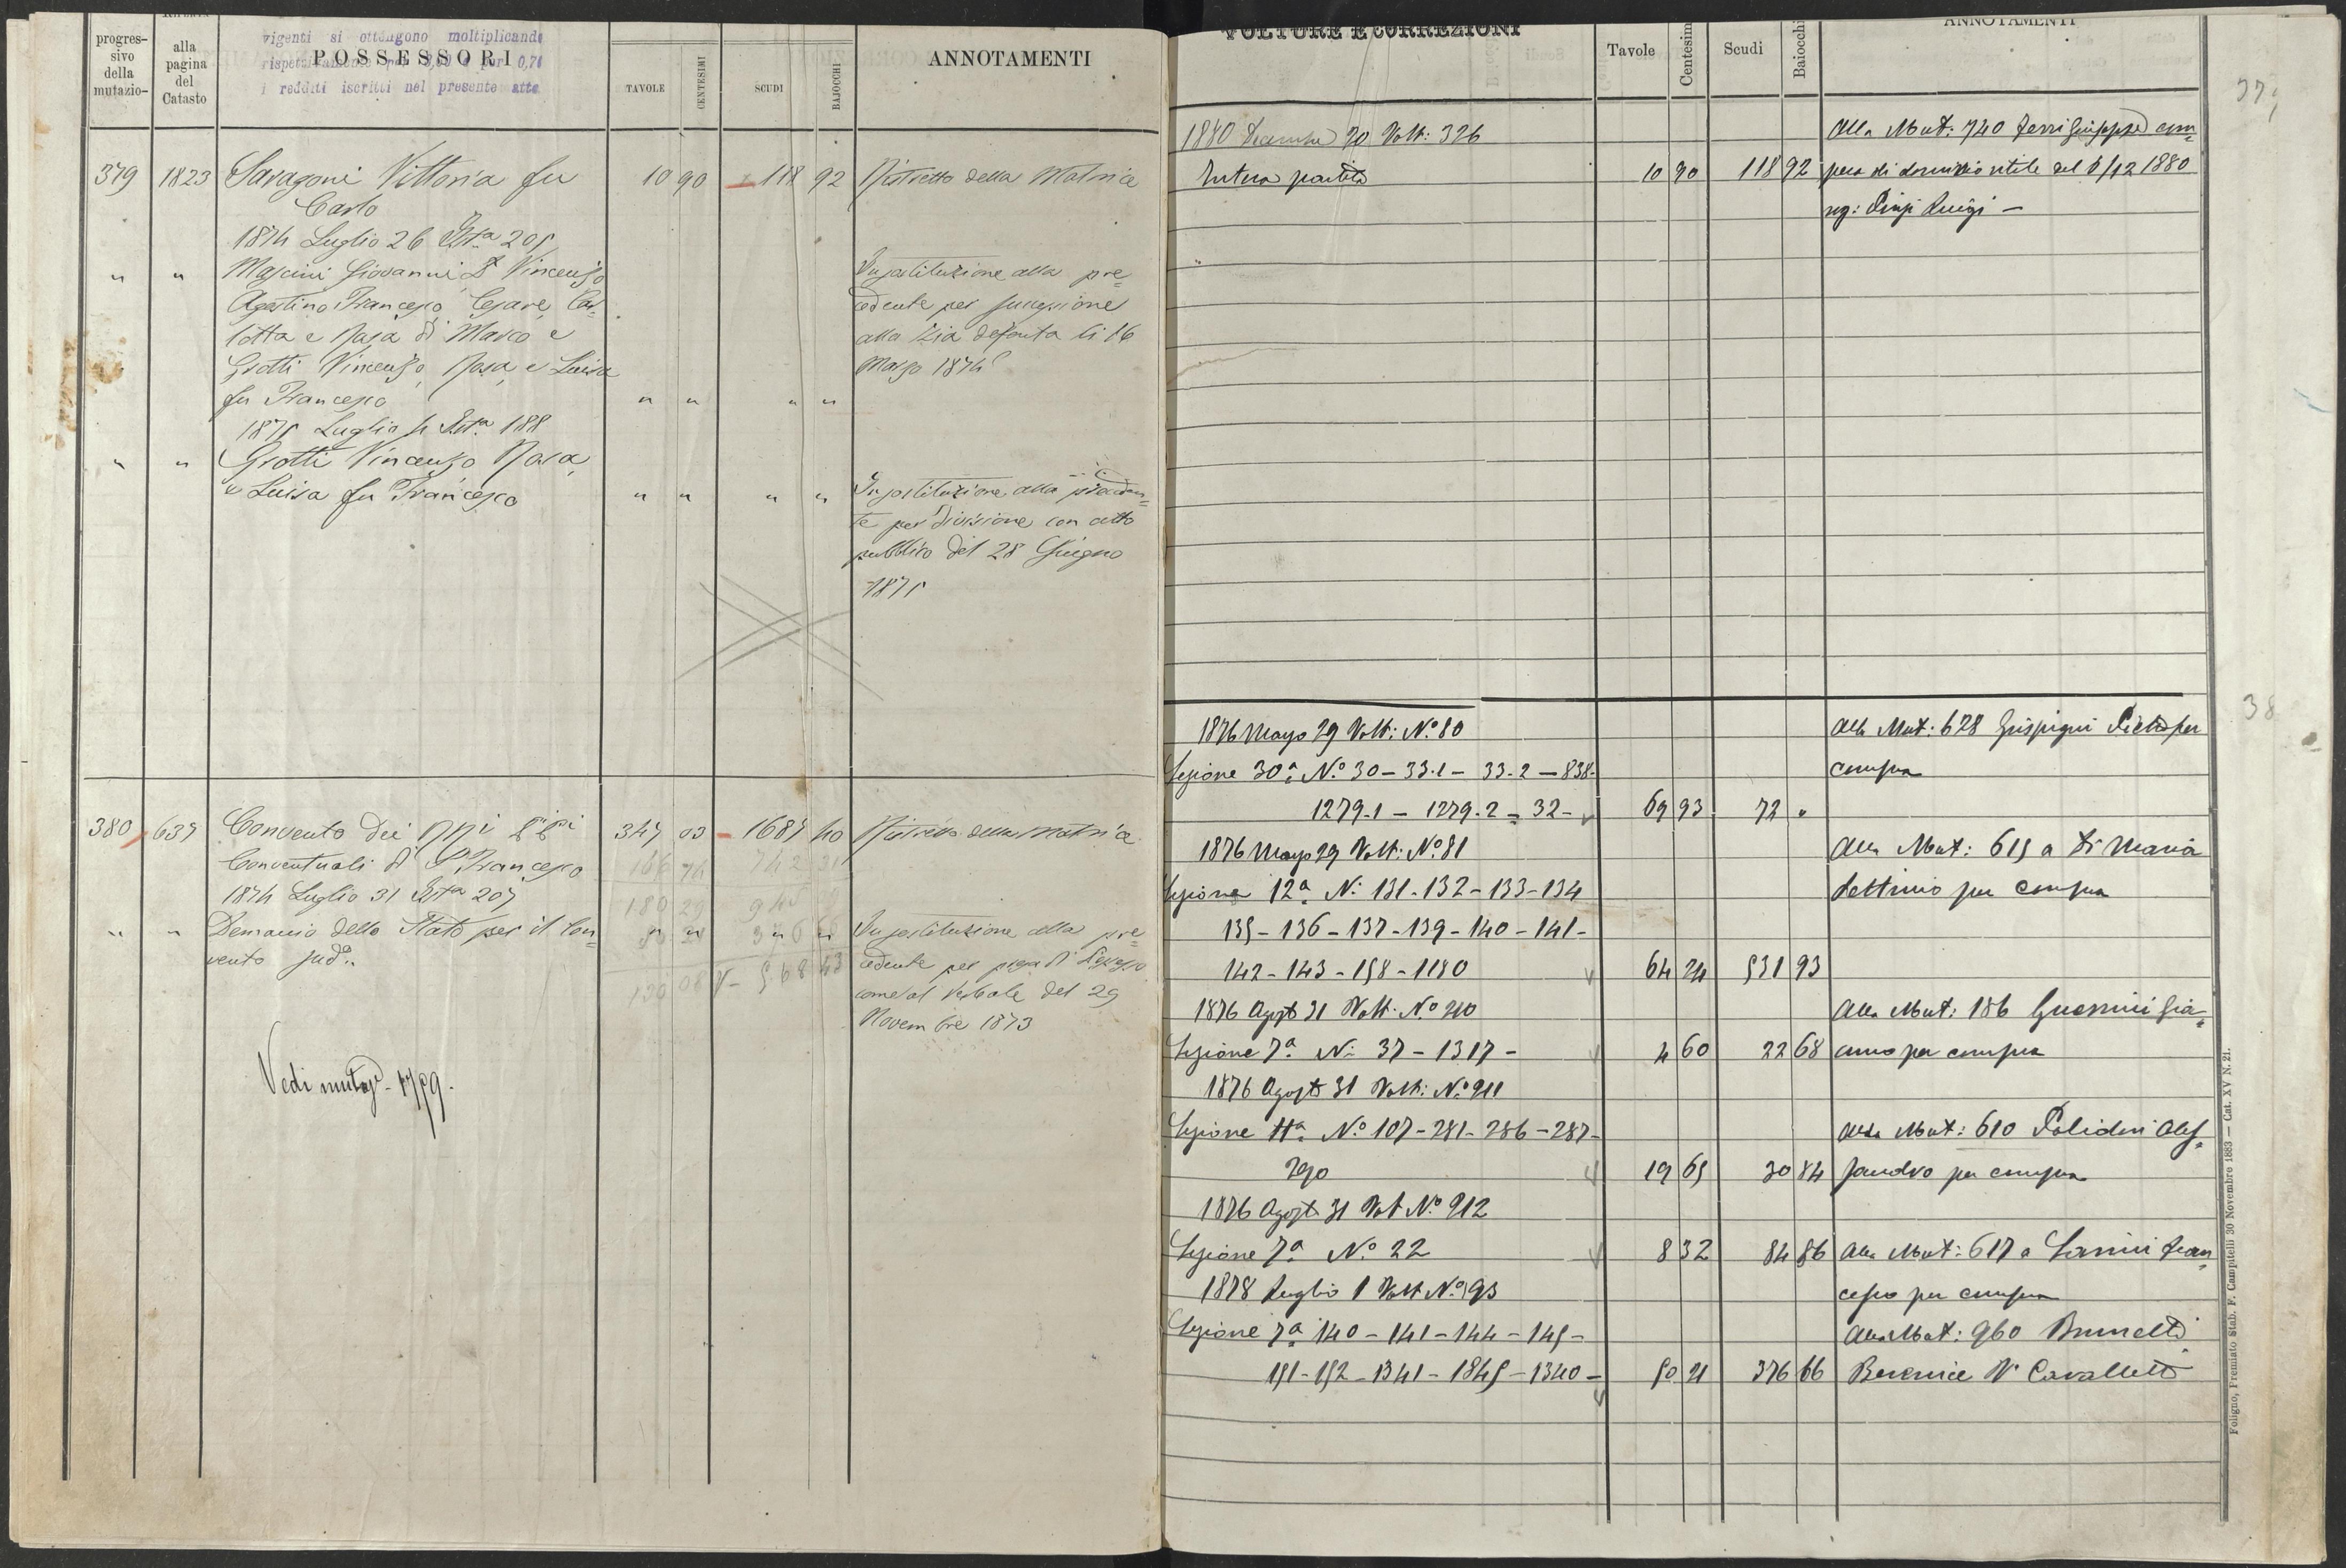 progres-
sivo
della
mutazio-
alla
pagina
del
Catasto
vigenti si ottengono moltiplicando
POSSESSORI
i redditi iscritti nel presente atto
TAVOLE
CENTESIMI
SCUDI
BAJOCCHI
ANNOTAMENTI
379 1823 Savagoni Vittoria fu 10 90 118 92 Ristretto della Matrice
Carlo
1874 Luglio 26 Rta 205
" " Mascini Giovanni Vincenzo Insostituzione alla pre=
Agostino Francesco Cesare Car- cedente per successione
lotta e Rosa di Marco e alla zia defonta li 16
Grotti Vincenzo Rosa e Luisa Marzo 1874
fu Francesco " " " "
1875 Luglio 4 Rta 188
" " Grotti Vincenzo Rosa
e Luisa fu Francesco " " " " Insostituzione alla preceden=
te per divisione con atto
pubblico del 28 Giugno
1875
380 637 Convento dei RRi PPi 347 03 1687 40 Ristretto della Matrice
Conventuali di S. Francesco 166 74 742 31
1874 Luglio 31 Rta 207 180 29 945
" " Demanio dello Stato per il Con= " " " " Insostituzione alla pre=
vento sudo. cedente per presa di Possesso
130 08 568 43
come al Verbale del 29
Novembre 1873
Vedi mutaz.
VOLTURE E CORREZIONI
Tavole
Centesimi
Scudi
Baiocchi
ANNOTAMENTI
37
1880 Decembre 20 Volt: 326 Alla Mut: 740 Ferri Giuseppe com=
Intera partita 10 90 118 92 pera di dominio utile del 8/12 1880
rog: Luigi —
38
1876 Marzo 29 Volt: No. 80 Alla Mut: 628 Grispigni Pietro per
Sezione 30a. No. 30 - 33.1 - 33.2 - 838- compra
1279.1 - 1279.2 - 32 - 69 93 72 "
1876 Marzo 29 Volt: No. 81 Alla Mut: 615 a Di Maria
Sezione 12a. N. 131 - 132 - 133 - 134 Settimio per compra
135 - 136 - 137 - 139 - 140 - 141 -
142 - 143 - 158 - 1180 64 24 531 93
1876 Agosto 31 Volt. No. 210 Alla Mut: 186 Guerrini Gia=
Sezione 7a. N. 37 - 1317 - 4 60 22 68 como per compra
1876 Agosto 31 Volt: No. 211
Sezione 11a. No. 107 - 281 - 286 - 287 - Alla Mut: 610 Polidori Ales=
290 19 65 30 84 sandro per compra
1876 Agosto 31 Vol No. 212
Sezione 7a. No. 22 8 32 84 86 Alla Mut: 617 a Lanini Fran=
1878 Luglio 1 Volt No. 193 cesco per compra
Sezione 7a 140 - 141 - 144 - 145 - Alla Mut: 960 Brunetti
151 - 152 - 1341 - 1845 - 1340 - 50 21 376 66 Berenice Va Cavalletti
Foligno, Premiato Stab. F. Campitelli 30 Novembre 1883 — Cat. XV N. 21.